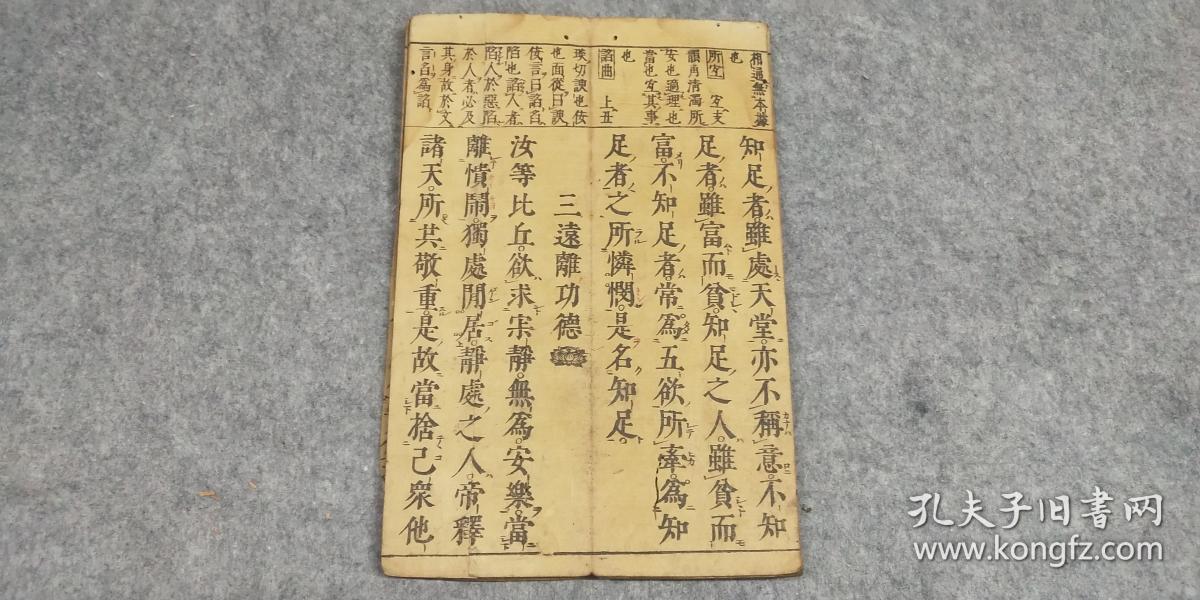 相通無本據
也
所宜 宜支
韻角清濁所
安也適理也
當也宜其事
也
諂曲 上丑
琰切諛也佞
也面從曰諛
佞言曰諂諂
陷也諂人者
陷人於惡陷
於人者必及
其身故於文
言臽為諂
知足者雖處天堂亦不稱意不知
足者雖富而貧知足之人雖貧而
富不知足者常為五欲所牽為知
足者之所憐愍是名知足
三遠離功德
汝等比丘欲求寂靜無為安樂當
離憒鬧獨處閒居靜處之人帝釋
諸天所共敬重是故當捨己衆他
孔夫子旧书网
www.kongfz.com